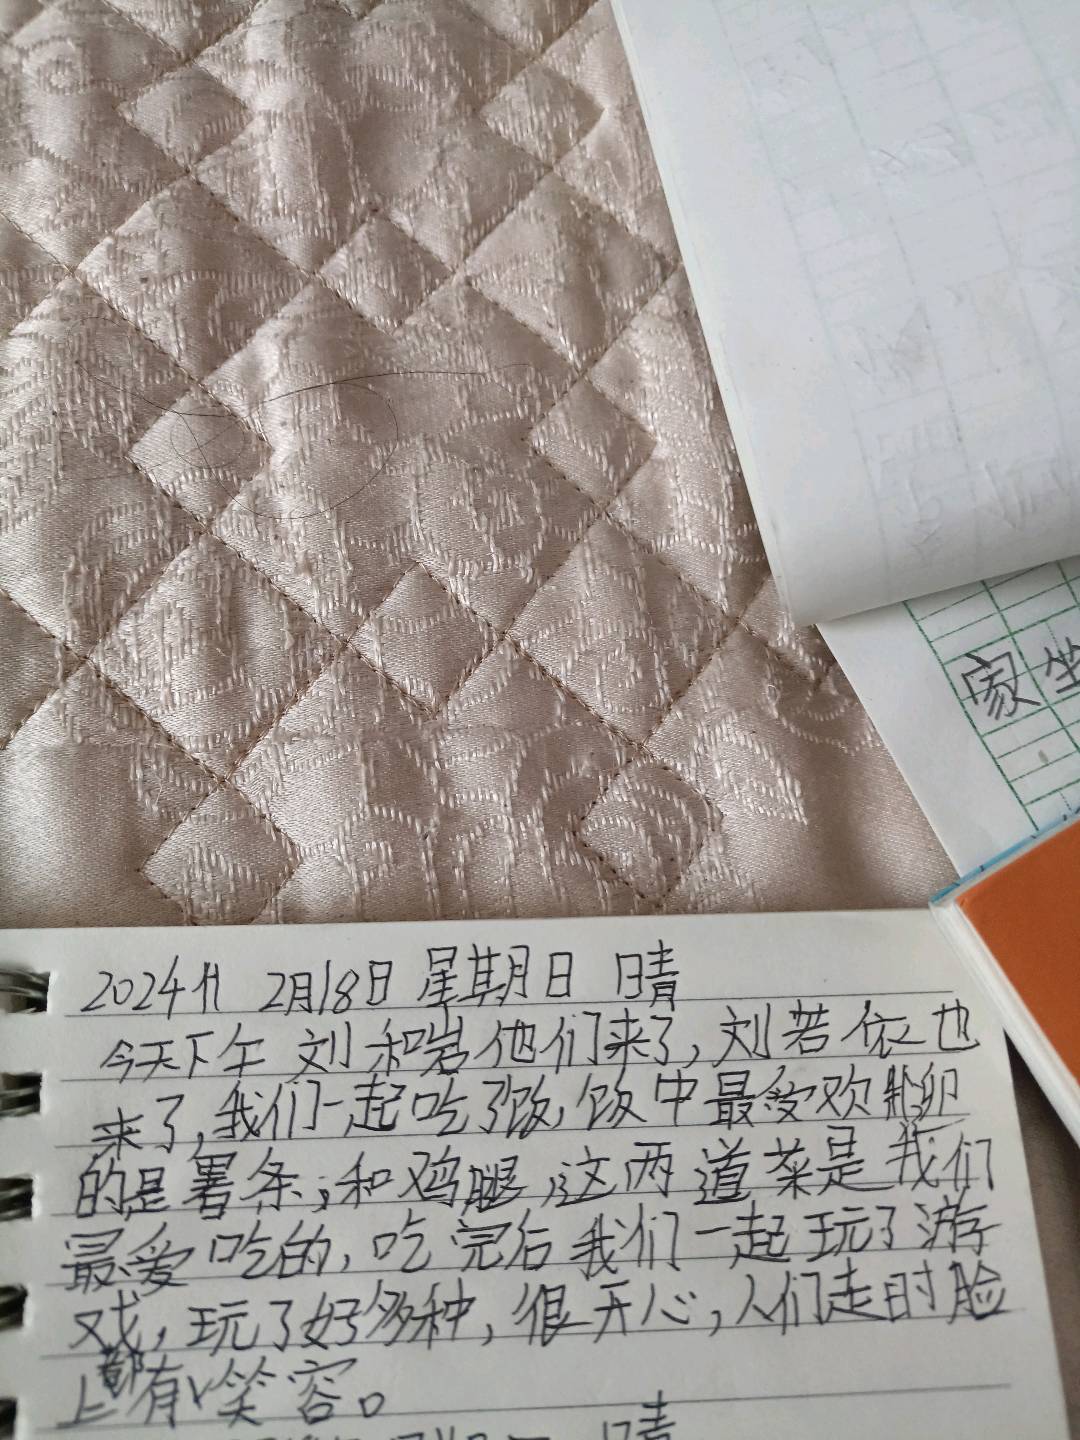 家坐
2024年 2月18日 星期日 晴
今天下午 刘和岩他们来了,刘若依也
来了,我们一起吃了饭,饭中最受欢
的是薯条,和鸡腿,这两道菜是我们
最爱吃的,吃完后我们一起玩了游
戏,玩了好多种,很开心,人们走时脸
上都有笑容。
晴